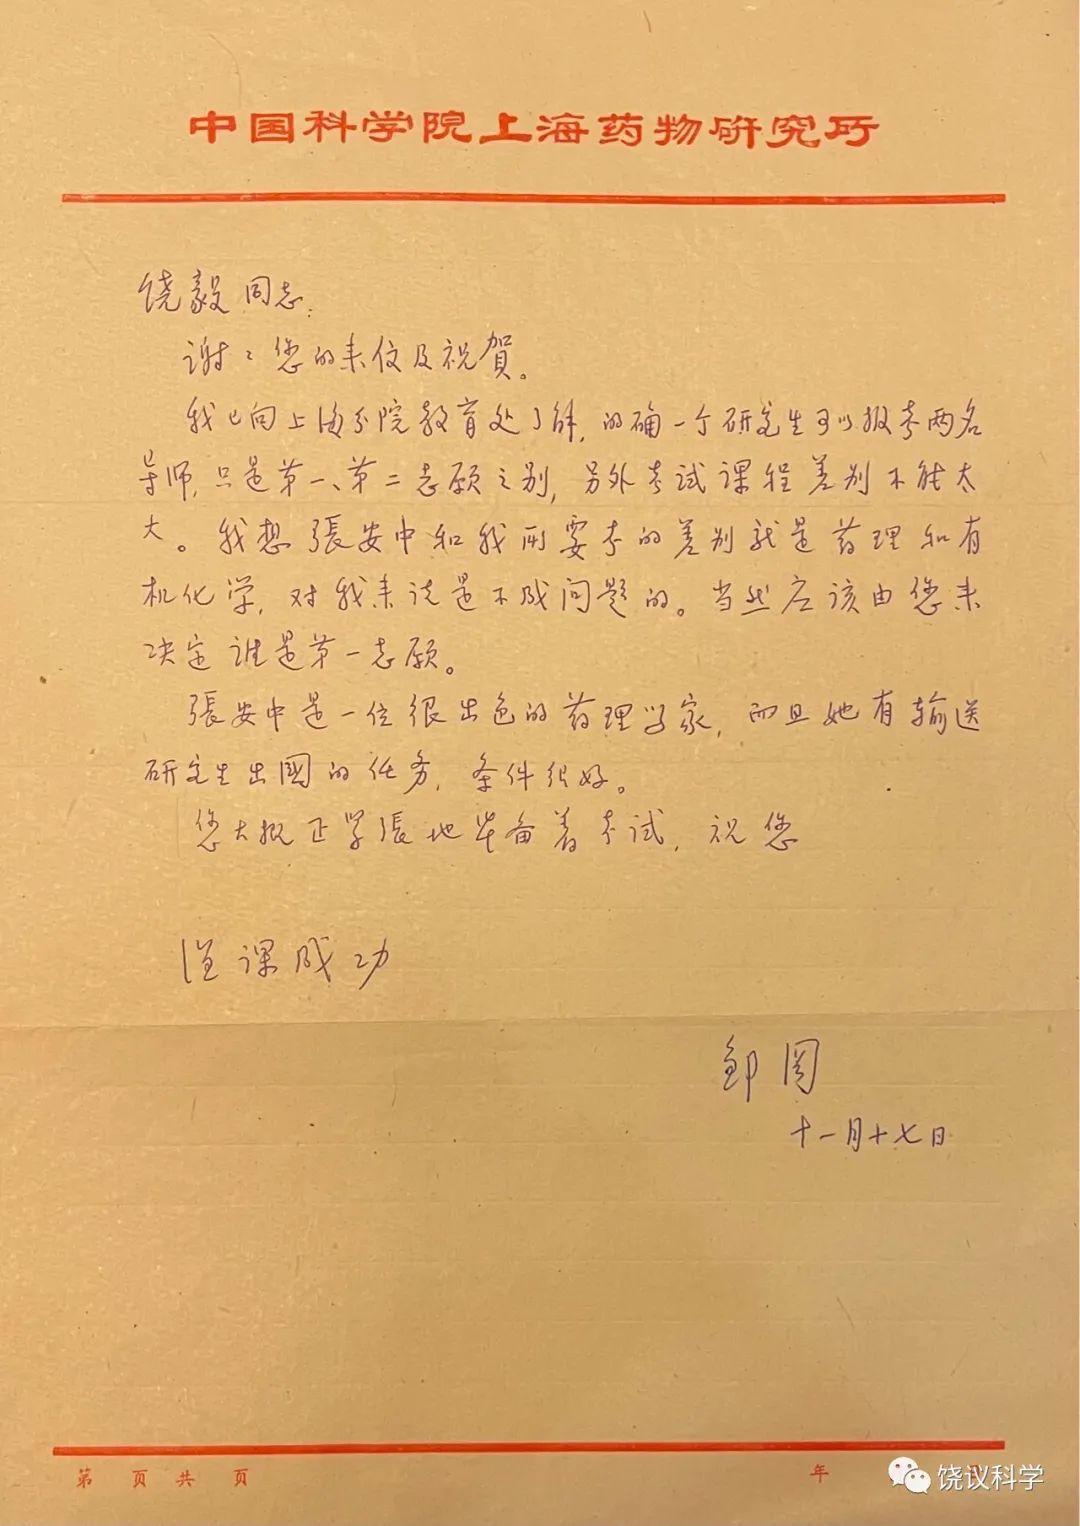 中国科学院上海药物研究所
饶毅同志:
谢々您的来信及祝賀。
我已向上海分院教育处了解,的确一个研究生可以报考两名
导师,只是第一、第二志愿之别,另外考试课程差别不能太
大。我想張安中和我所要考的差别就是药理和有
机化学,对我来说是不成问题的。当然应该由您来
决定谁是第一志愿。
張安中是一位很出色的药理学家,而且她有输送
研究生出國的任务,条件很好。
您大概正緊張地准备着考试,祝您
课成功
邹冈
十一月十七日
第 页 共 页
年
饶议科学